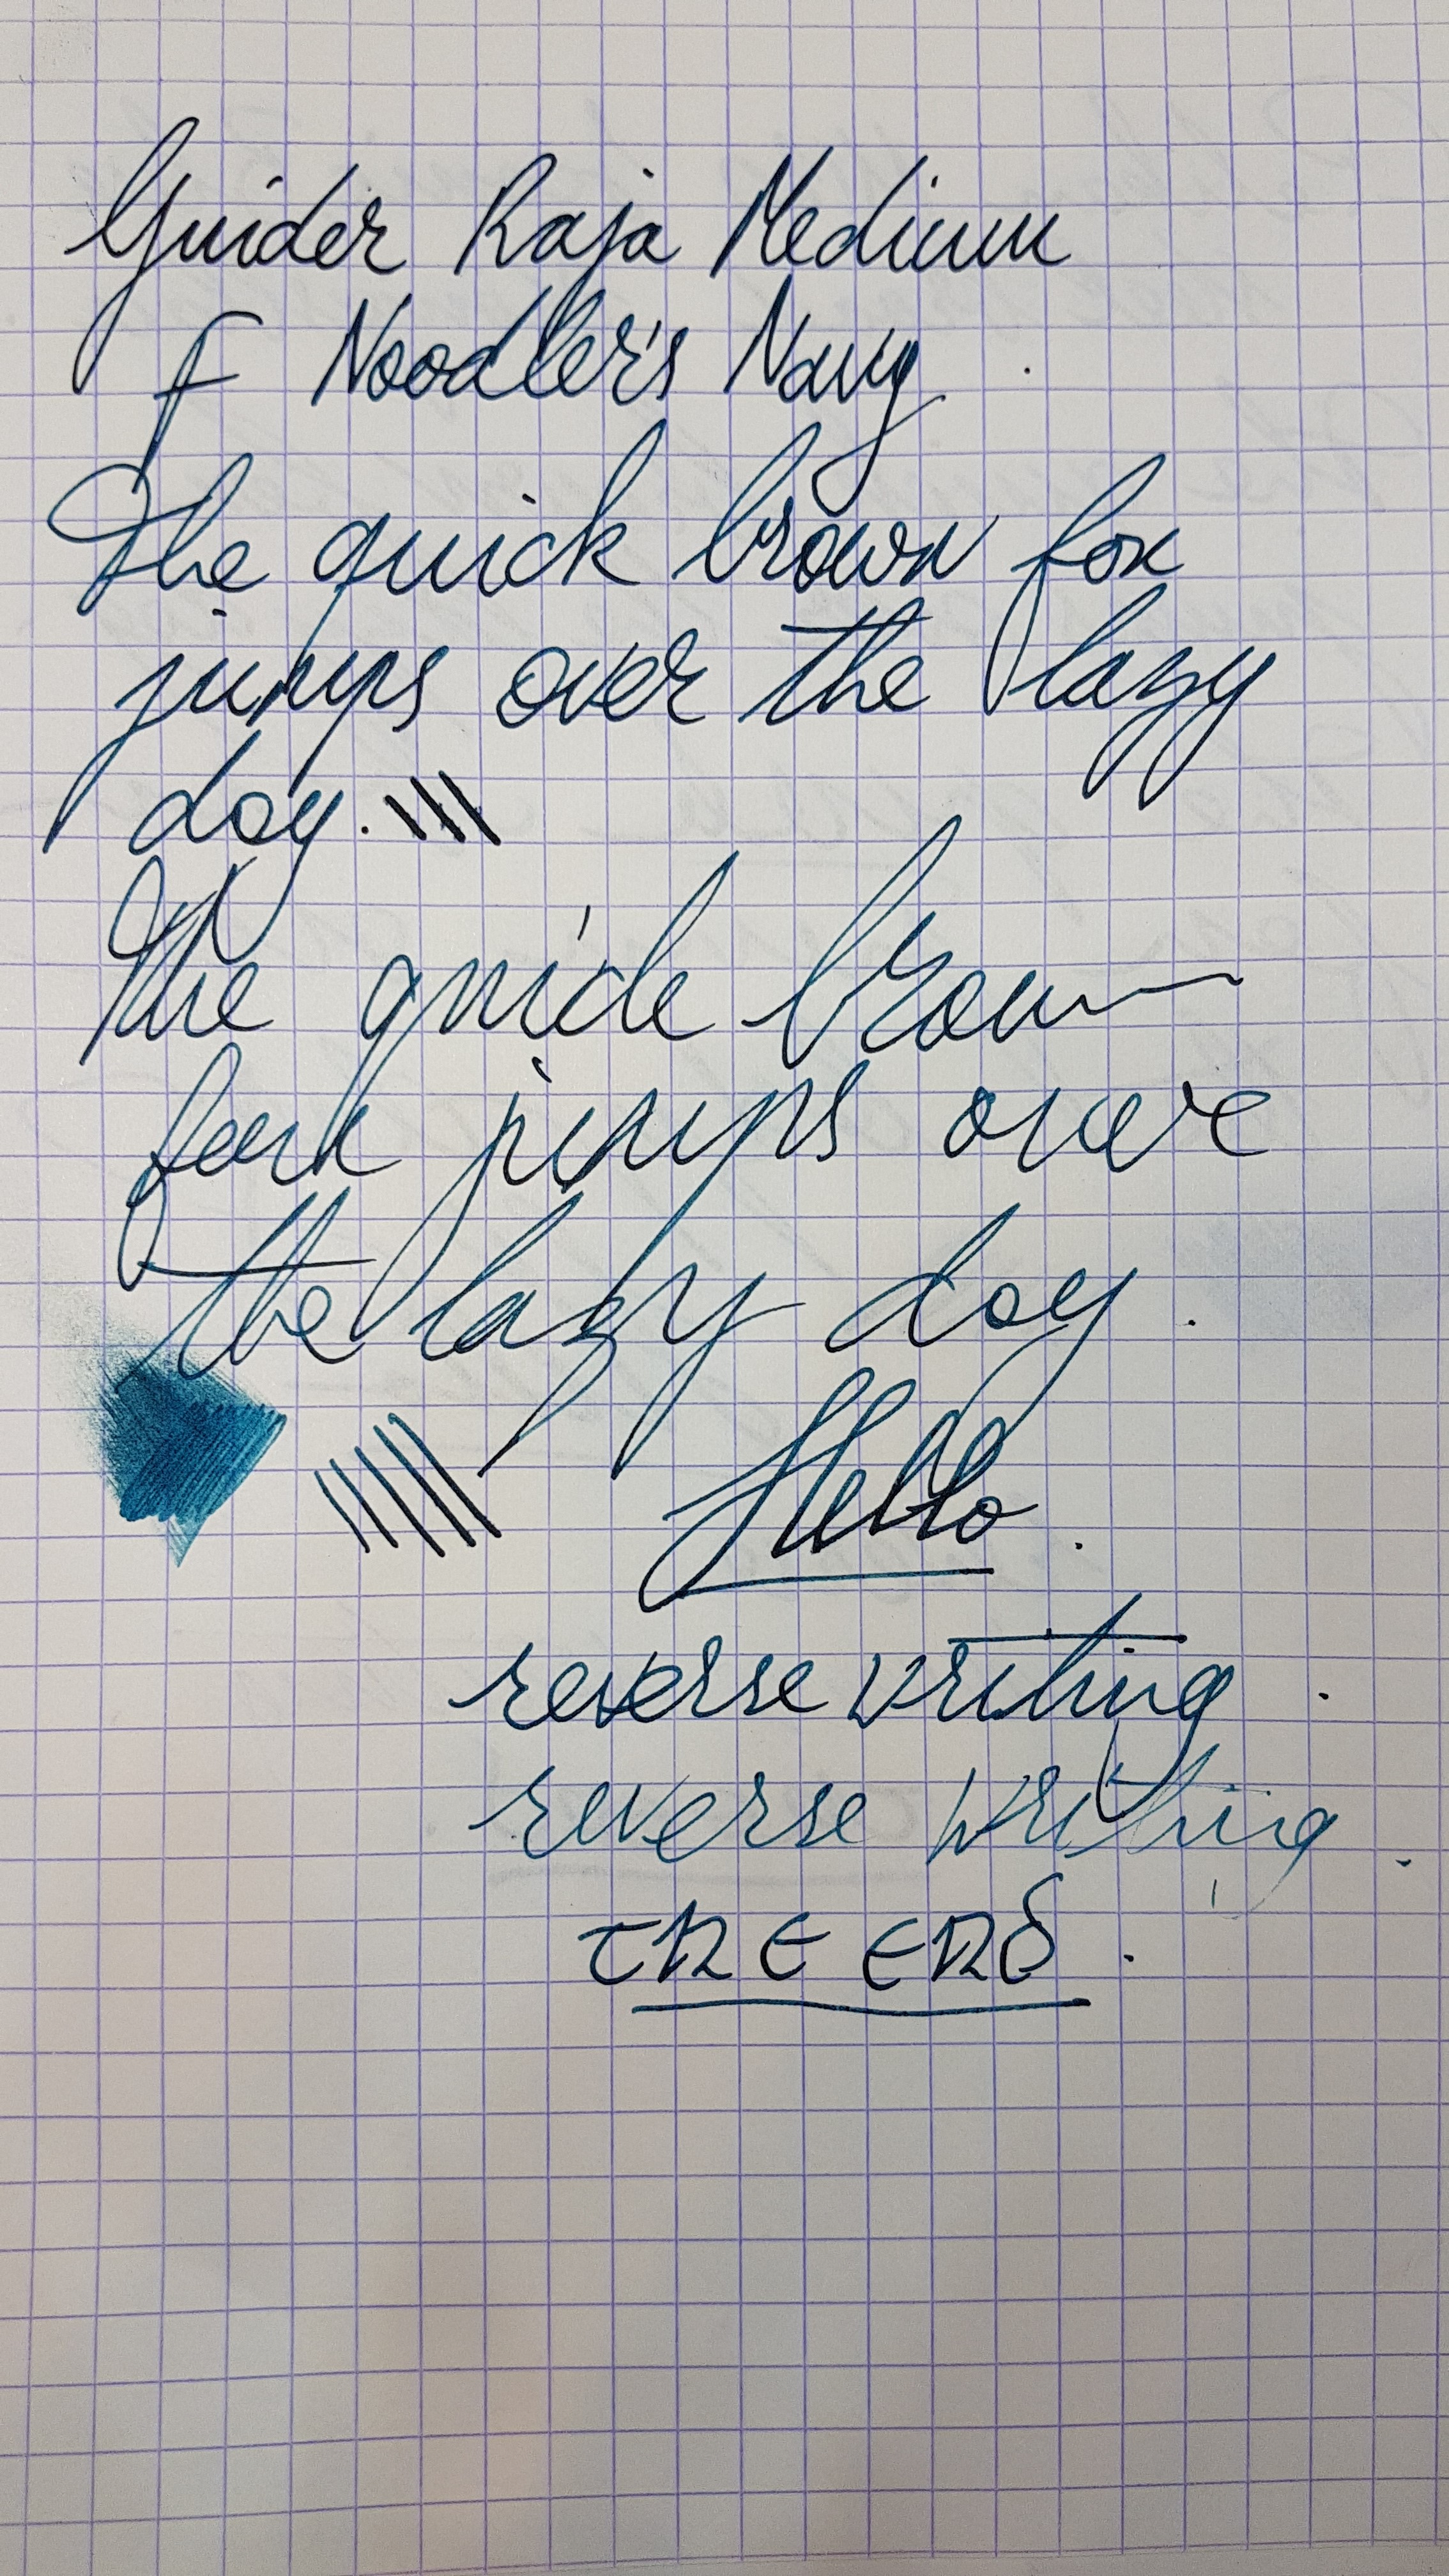 Guider Raja Medium
f Noodler's Navy
The quick brown fox
jumps over the lazy
dog.
The quick brown
jumps over
the lazy dog.
Hello.
reverse writing.
reverse writing.
THE END.